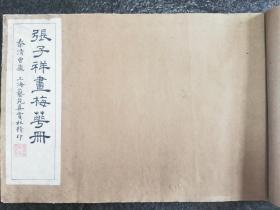 張子祥畫梅華冊
泰清曾藏 上海藝苑真賞社精印